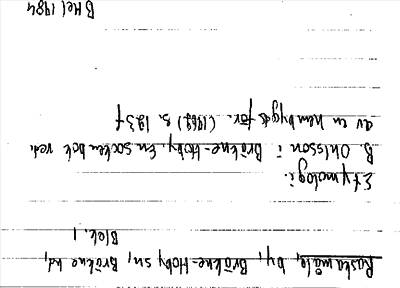 Raskamåla, by, Bräkne-Hoby sn, Bräkne hd,
Blek. l
Etymologi:
B. Ohlsson i Bräkne-Hoby. En sockenbok red.
av en hembygdsför. (1962) s. 193 f
BHel 1984